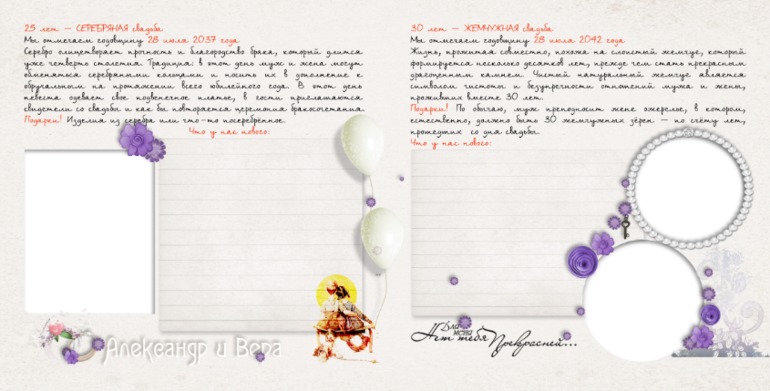 25 лет — СЕРЕБРЯНАЯ свадьба
Мы отмечаем годовщину 28 июля 2037 года
Серебро олицетворяет прочность и благородство брака, который длится
уже четверть столетия. Традиция: в этот день муж и жена могут
обменяться серебряными кольцами и носить их в дополнение к
обручальным на протяжении всего юбилейного года. В этот день
невеста одевает свое подвенечное платье, в гости приглашаются
свидетели со свадьбы и как бы повторяется церемония бракосочетания
Подарки! Изделия из серебра или что-то посеребрённое.
Что у нас нового:
Александр и Вера
30 лет — ЖЕМЧУЖНАЯ свадьба
Мы отмечаем годовщину 28 июля 2042 года
Жизнь, прожитая совместно, похожа на слоистый жемчуг, который
формируется несколько десятков лет, прежде чем стать прекрасным
драгоценным камнем. Чистый натуральный жемчуг является
символом чистоты и безупречности отношений мужа и жены,
проживших вместе 30 лет.
Подарки! По обычаю, муж преподносит жене ожерелье, в котором,
естественно, должно быть 30 жемчужных зёрен — по счёту лет,
прошедших со дня свадьбы.
Что у нас нового:
Для меня
Нет тебя Прекрасней...